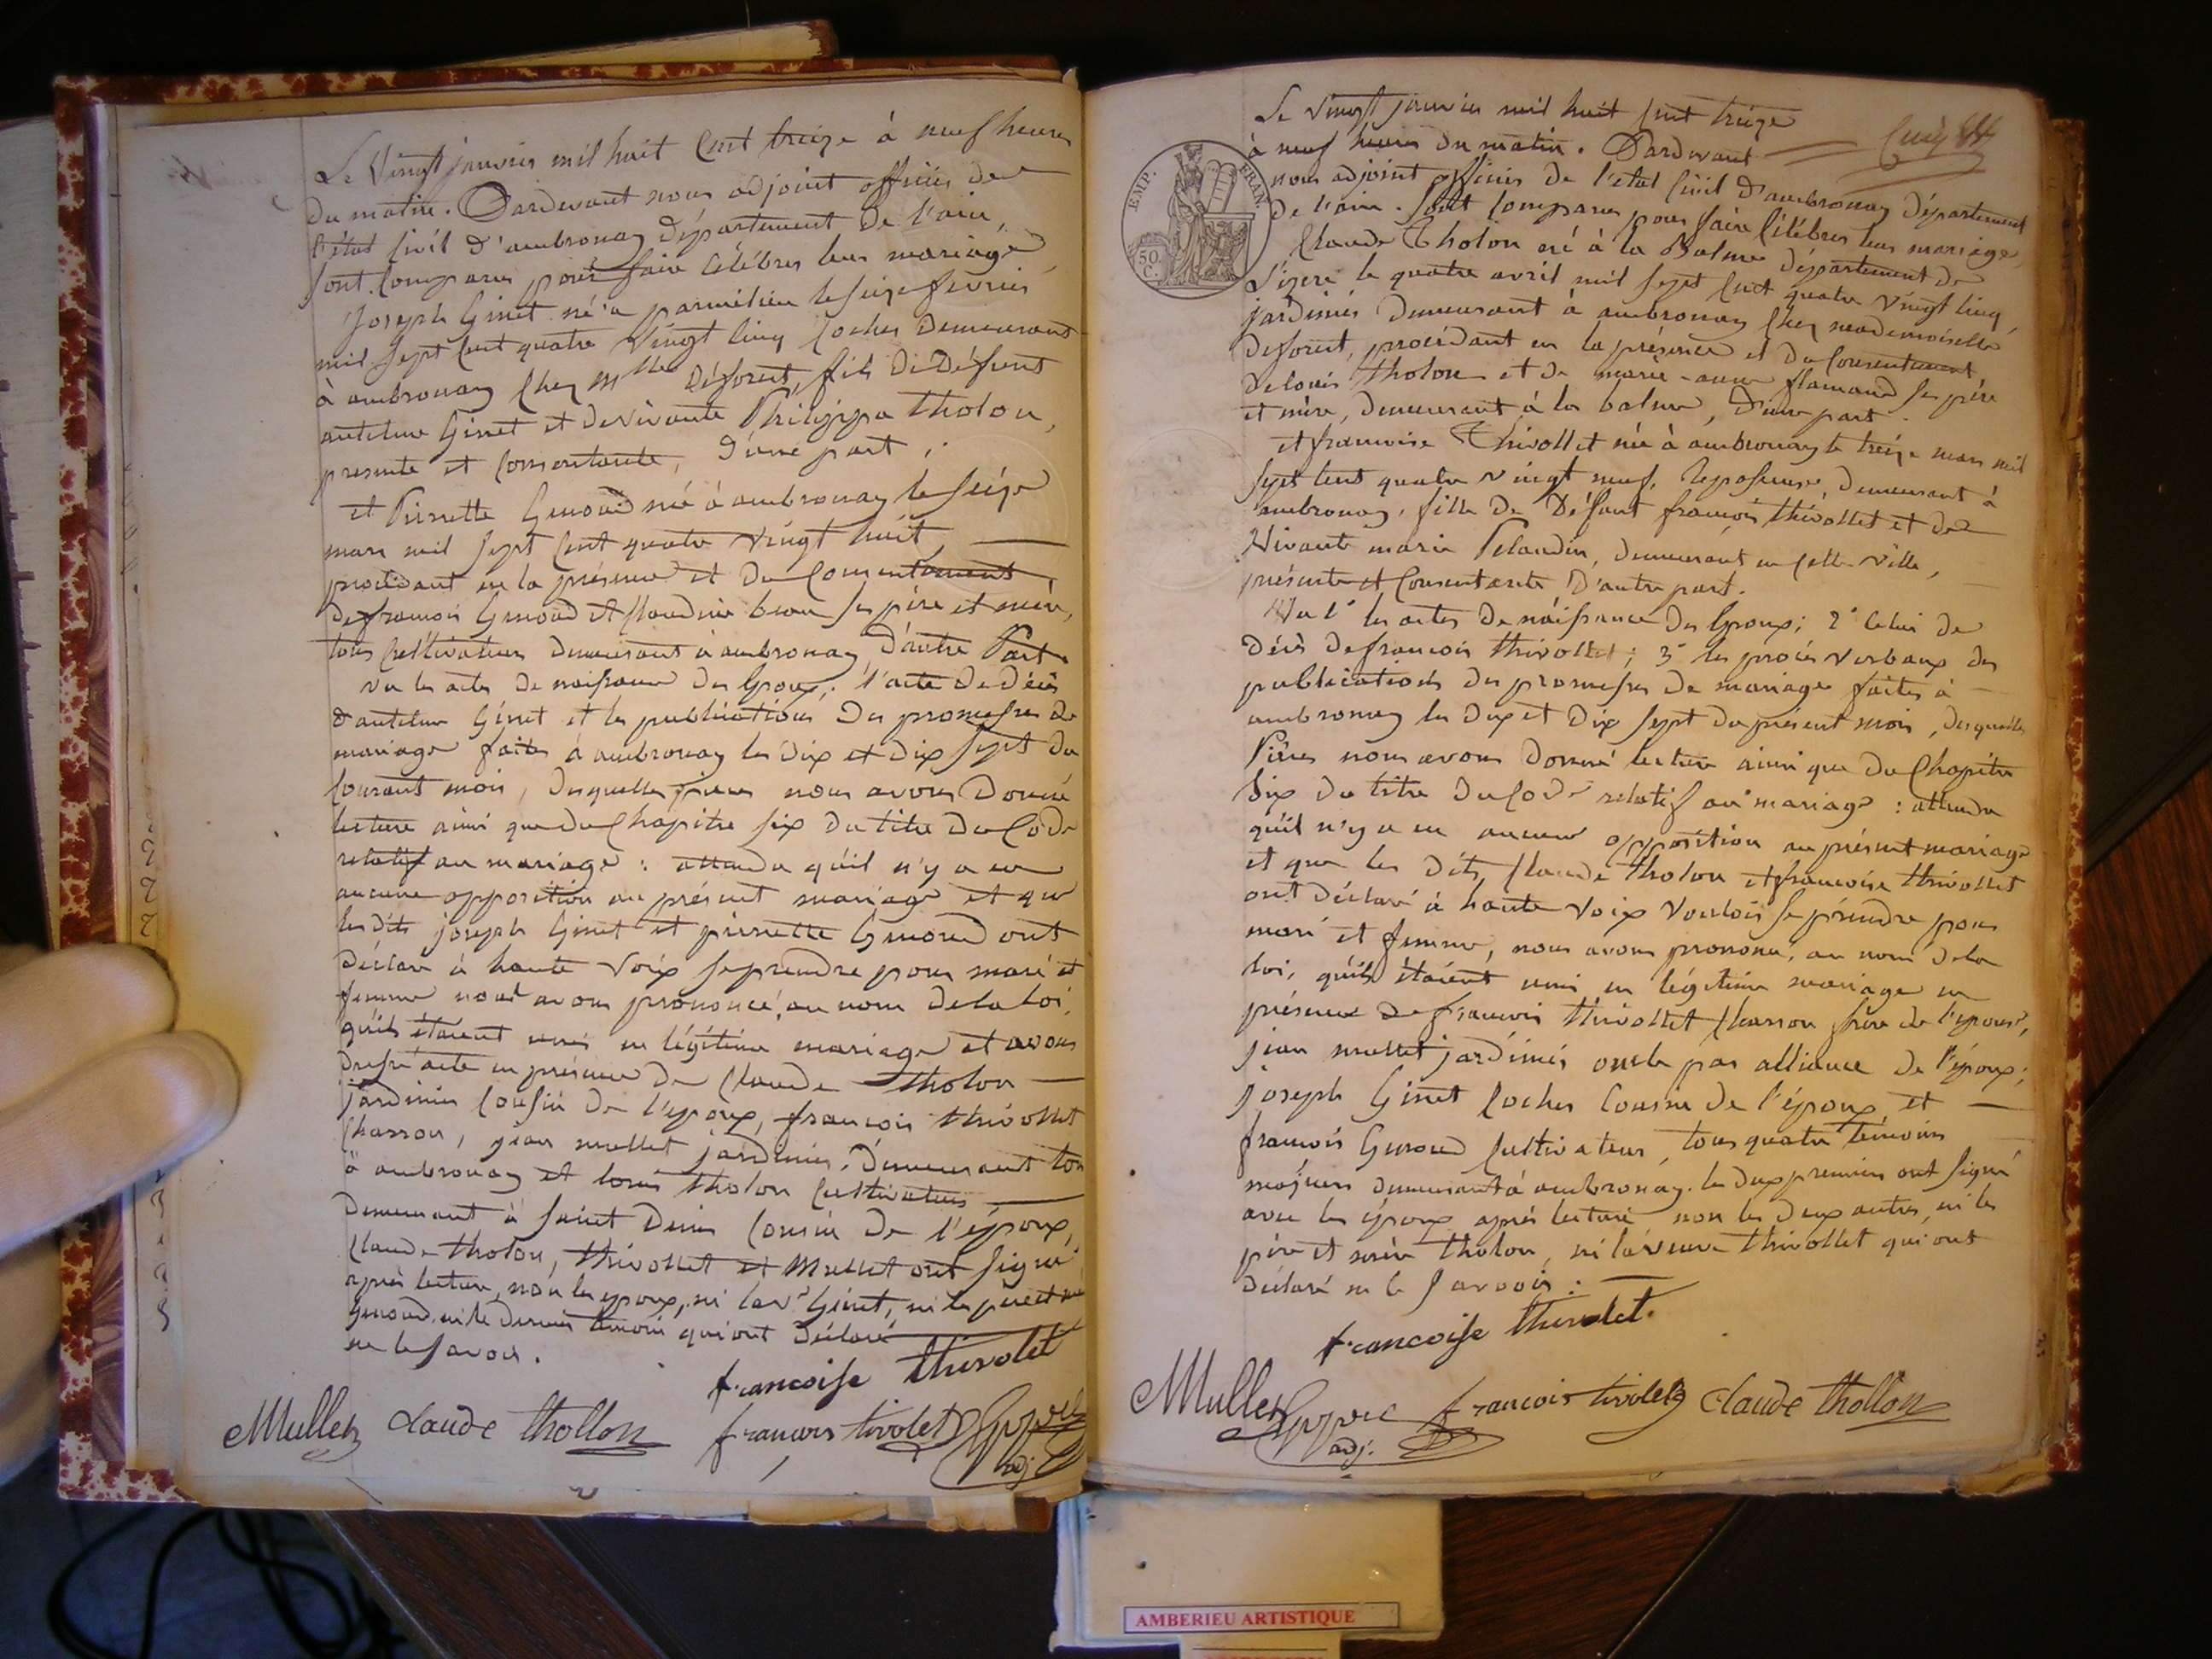 Le Vingt janvier mil huit Cent treize à neuf heures
du matin. Pardevant nous adjoint officier de
l'état Civil d'ambronay département de l'ain,
sont Comparus pour faire Célébrer leur mariage
Joseph Ginet né à parmilieu le seize fevrier
mil sept Cent quatre Vingt Cinq Cocher demeurant
à ambronay Chez Mlle déforest, fils de défunt
antelme Ginet et de vivante Philippa tholon,
presente et Consentante, d'une part ;
et Pierrette Genoud née à ambronay le seize
mars mil sept Cent quatre Vingt huit
procédant en la présence et du Consentement
de francois Genoud et Claudine ses père et mère,
tous Cultivateurs demeurant à ambronay, d'autre Part.
vu les actes de naissance des Epoux ; l'acte de décès
d'antelme Ginet et les publications des promesses de
mariage faites à ambronay les dix et dix sept du
Courant mois, desquelles pieces nous avons donné
lecture ainsi que du Chapitre six du titre du Code
relatif au mariage : attendu qu'il n'y a eu
aucune opposition au présent mariage et que
les dits joseph Ginet et pierrette Genoud ont
déclaré à haute Voix se prendre pour mari et
femme nous avons prononcé, au nom de la loi,
qu'ils étaient unis en légitime mariage et avons
dressé acte en présence de Claude tholon
jardinier Cousin de l'epoux, francois thivollet
Charron, jean mullet jardinier, demeurant tous
à ambronay et louis tholon Cultivateur
demeurant à saint Denis Cousin de l'époux,
Claude tholon, thivollet et Mullet ont signé
après lecture, non les epoux, ni la Ve Ginet, ni les père et mère
Genoud, ni le dernier témoin qui ont déclaré
ne le savoir.
francoise thivolet
Mullet Claude thollon francois tivolet
adj.
Le Vingt janvier mil huit Cent treize
à neuf heures du matin. Pardevant
nous adjoint officier de l'état Civil d'ambronay département
de l'ain. sont Comparus pour faire Célébrer leur mariage,
Claude Tholon né à la Balme département de
l'izere le quatre avril mil sept Cent quatre vingt Cinq,
jardinier demeurant à ambronay Chez mademoiselle
deforest, procédant en la présence et du Consentement
de louis tholon et de marie-anne flamand ses père
et mère, demeurant à la balme, d'une part.
et francoise Thivollet née à ambronay le treize mars mil
sept Cent quatre vingt neuf, Repasseuse, demeurant à
ambronay, fille de défunt francois thivollet et de
Vivante marie Pelaudin, demeurant en cette Ville,
présente et Consentante d'autre part.
Vu 1° les actes de naissance des Epoux ; 2° Celui de
décès de francois thivollet ; 3° les procès verbaux des
publications des promesses de mariage faites à
ambronay les dix et dix sept du présent mois, desquelles
Pièces nous avons donné lecture ainsi que du Chapitre
Six du titre du Code relatif au mariage : attendu
qu'il n'y a eu aucune opposition au présent mariage
et que les dits Claude tholon et francoise thivollet
ont déclaré à haute voix vouloir se prendre pour
mari et femme, nous avons prononcé, au nom de la
loi, qu'ils étaient unis en légitime mariage en
présence de francois thivollet Charron frère de l'epouse,
jean mullet jardinier oncle par alliance de l'époux ;
joseph Ginet Cocher Cousin de l'époux, et
francois Genoud Cultivateur, tous quatre témoins
majeurs demeurant à ambronay. les deux premiers ont signé
avec les époux après lecture, non les deux autres, ni les
père et mère tholon, ni la veuve thivollet qui ont
déclaré ne le savoir :
francoise thivolet.
Mullet francois tivolet Claude thollon
adj.
EMP. FRAN.
50 C.
AMBERIEU ARTISTIQUE